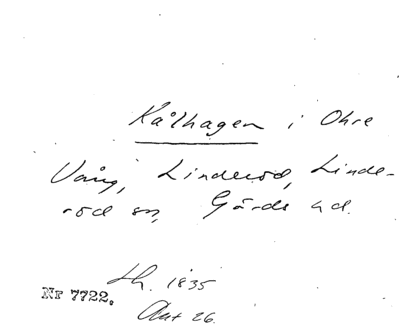 Kålhagen i Ohre
Vång, Linderöd, Linde-
röd sn, Gärds hd.
Lh. 1835
Nr 7722.
Akt 26.